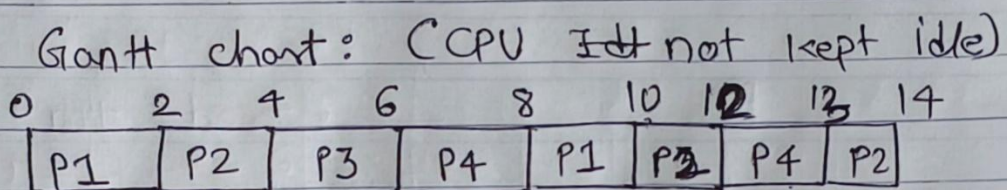 Gantt chart: (CPU not kept idle)
0 2 4 6 8 10 12 13 14
P1 P2 P3 P4 P1 P4 P2